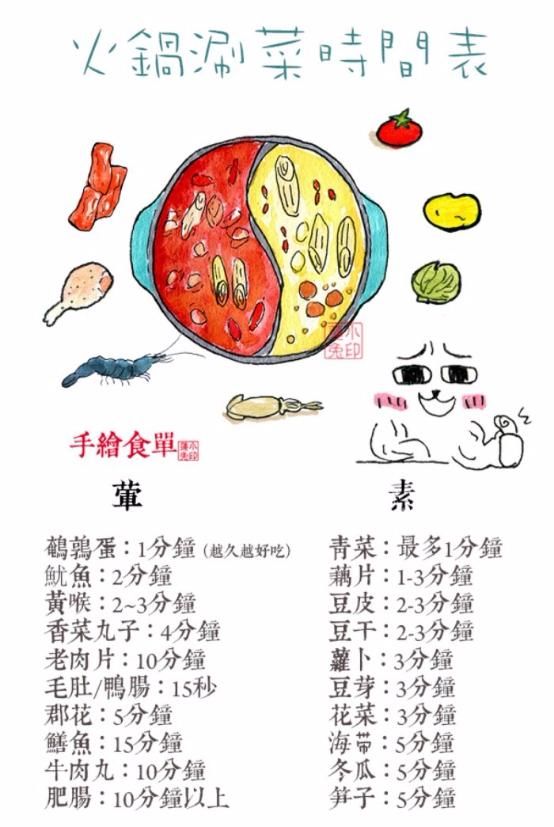 火鍋涮菜時間表
手繪食單
葷
鵪鶉蛋：1分鐘（越久越好吃）
魷魚：2分鐘
黃喉：2~3分鐘
香菜丸子：4分鐘
老肉片：10分鐘
毛肚/鴨腸：15秒
郡花：5分鐘
鱔魚：15分鐘
牛肉丸：10分鐘
肥腸：10分鐘以上
素
青菜：最多1分鐘
藕片：1-3分鐘
豆皮：2-3分鐘
豆干：2-3分鐘
蘿蔔：3分鐘
豆芽：3分鐘
花菜：3分鐘
海帶：5分鐘
冬瓜：5分鐘
笋子：5分鐘